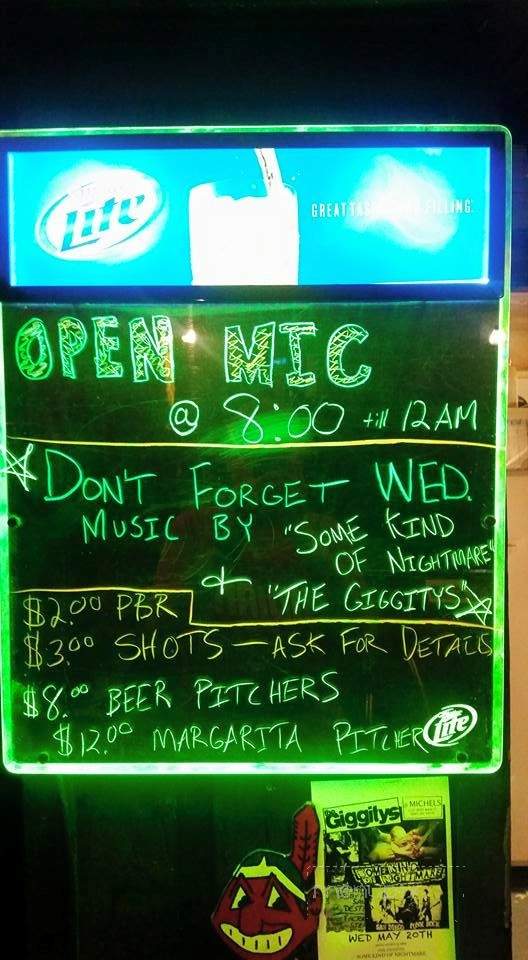 Lite
GREAT TAS FILLING.
OPEN MIC
@ 8:00 till 12 AM
DON'T FORGET WED.
MUSIC BY "SOME KIND
OF NIGHTMARE"
+ "THE GIGGITYS"
$2.00 PBR
$3.00 SHOTS - ASK FOR DETAILS
$8.00 BEER PITCHERS
$12.00 MARGARITA PITCHER
Lite
Giggitys
@ MICHELS
SOME KIND
OF NIGHTMARE
SAN DIEGO PUNK ROCK
WED MAY 20TH
SOME KIND OF NIGHTMARE